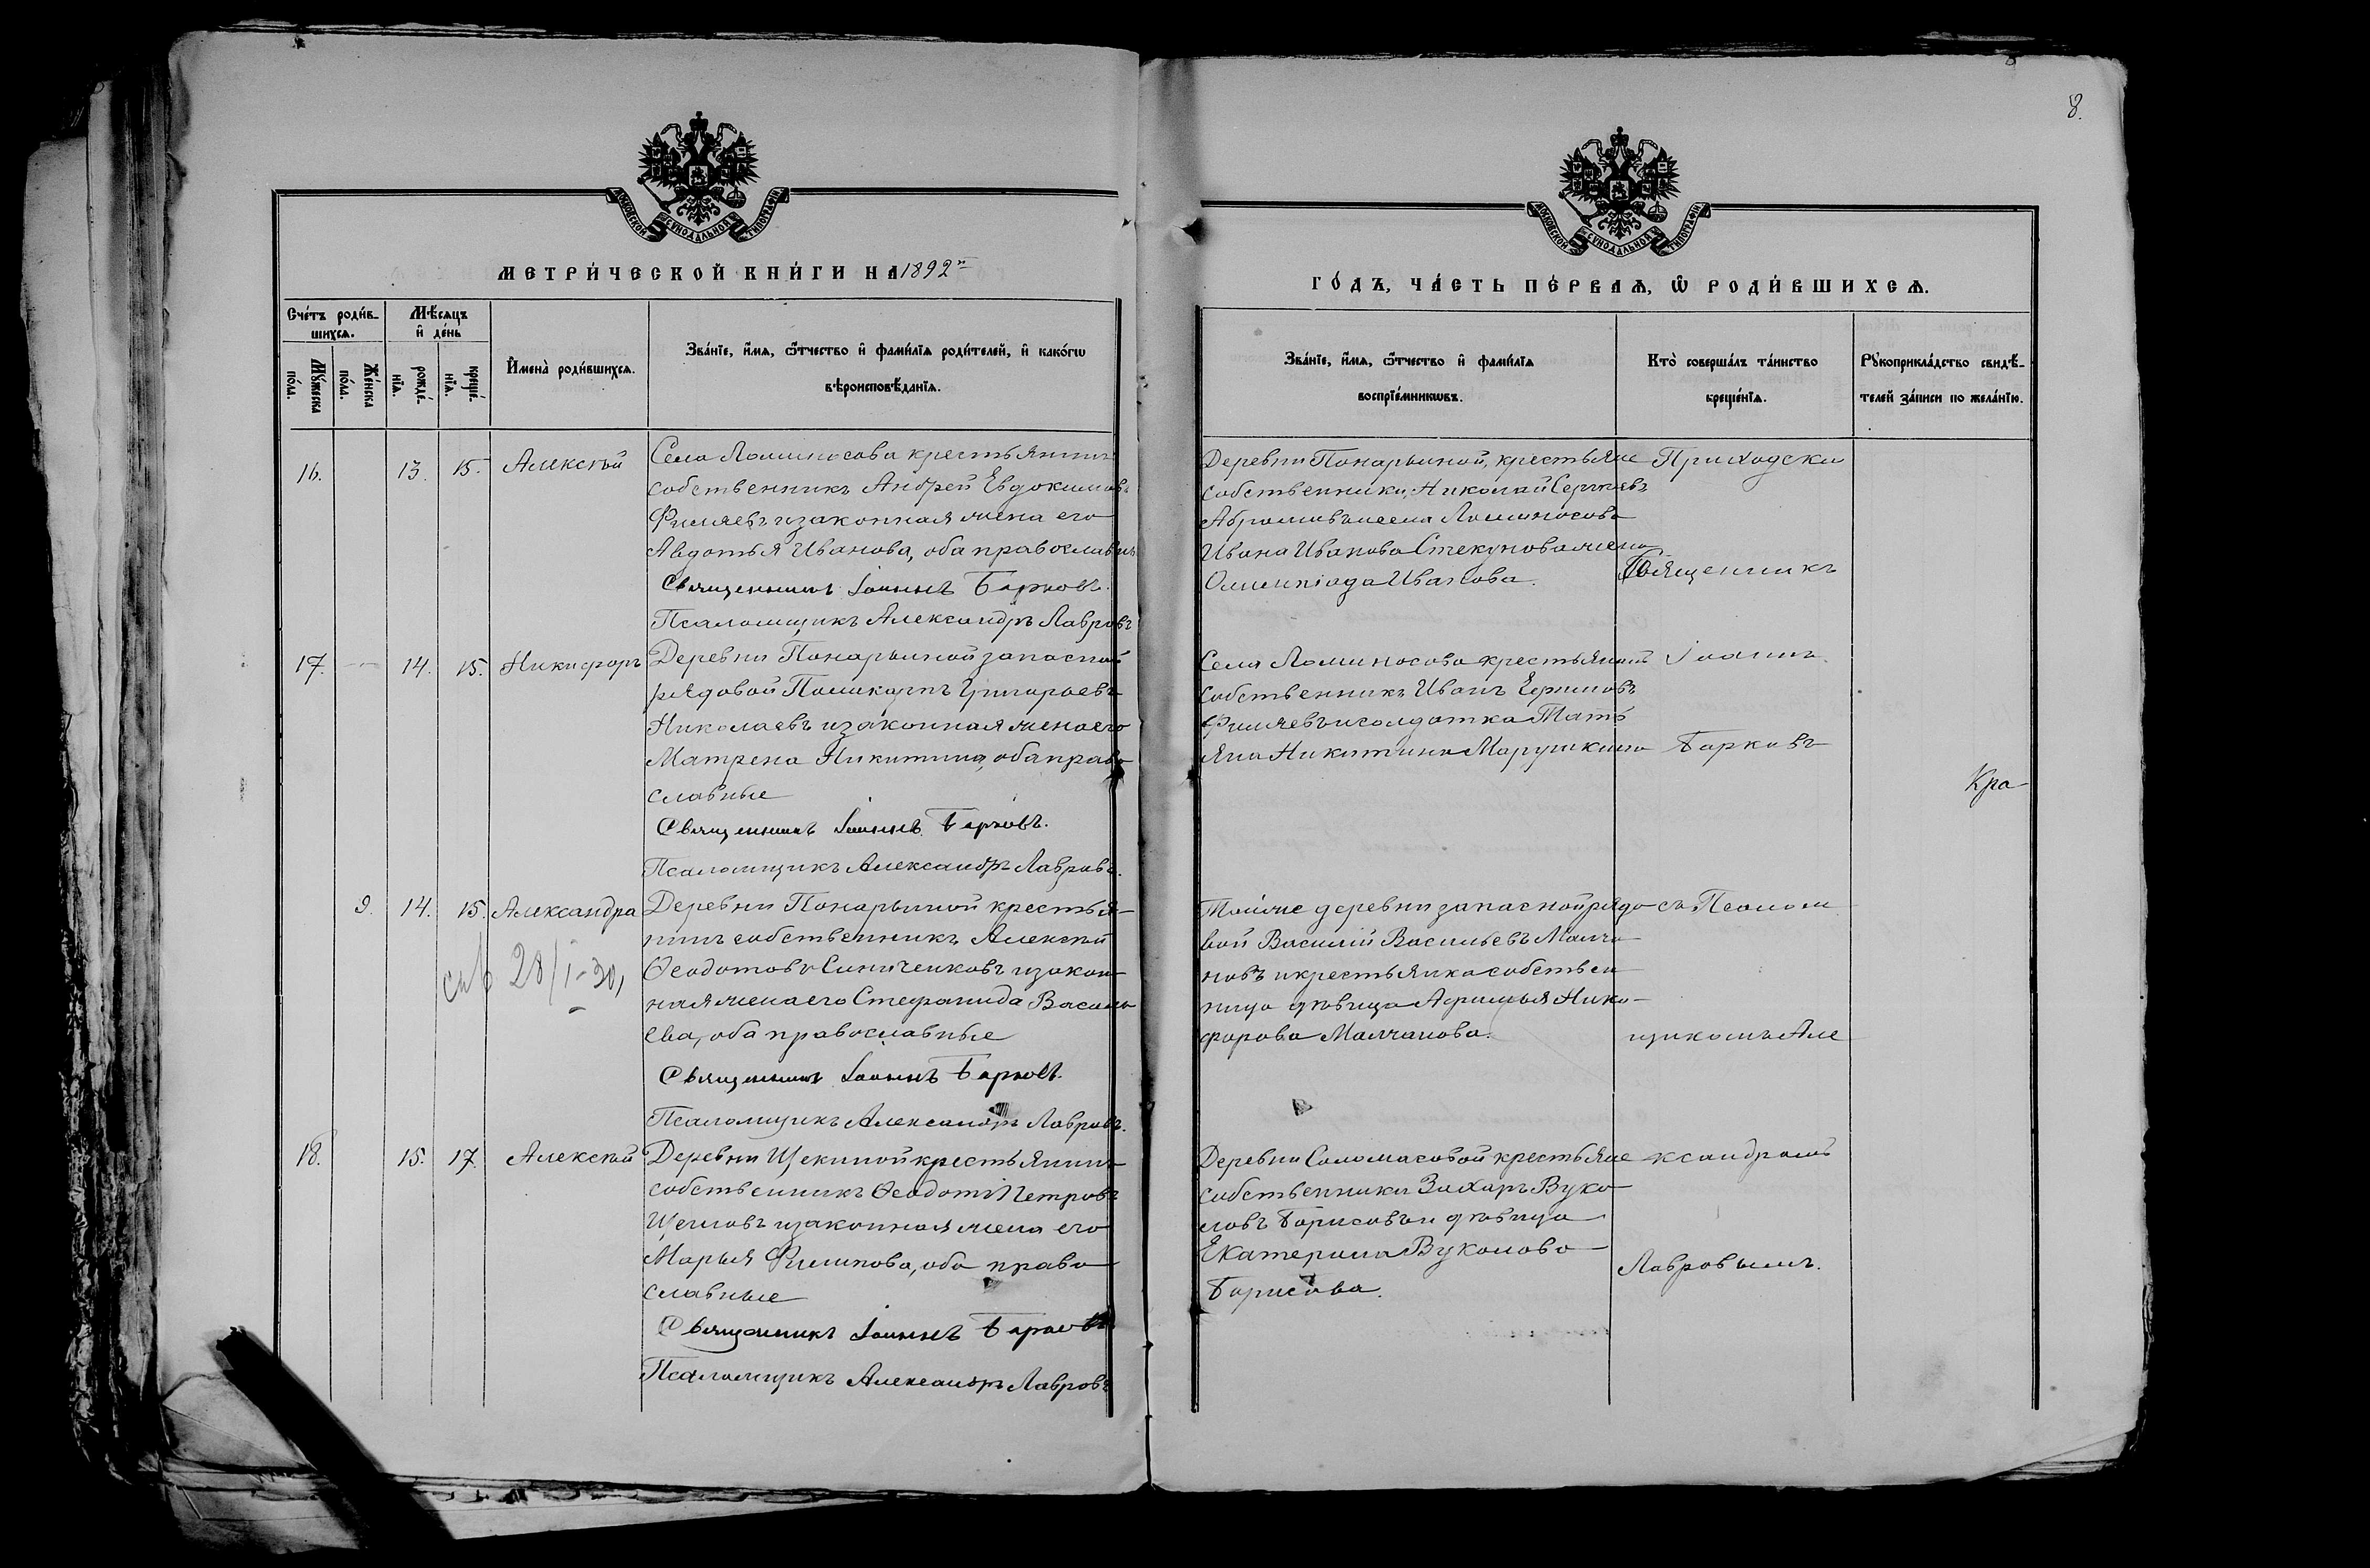 8.
МОСКОВСКОЙ СѴНОДАЛЬНОЙ ТИПОГРАФІИ
МОСКОВСКОЙ СѴНОДАЛЬНОЙ ТИПОГРАФІИ
МЕТРИ́ЧЕСКОЙ КНИ́ГИ НА 1892й
ГО́ДЪ, ЧА́СТЬ ПЕ́РВАѦ, Ѡ҆ РОДИ́ВШИХСѦ.
Сче́тъ роди́в-
шихсѧ.
Мꙋ́жеска по́ла.
Же́нска по́ла.
Мѣ́сѧцъ
и҆ де́нь
рожде́-
нїѧ.
креще́-
нїѧ.
И҆мена̀ роди́вшихсѧ.
Зва́нїе, и҆́мѧ, ѻ҆́тчество и҆ фами́лїѧ роди́телей, и҆ како́гѡ
вѣроисповѣ́данїѧ.
Зва́нїе, и҆́мѧ, ѻ҆́тчество и҆ фами́лїѧ
воспрїе́мникѡвъ.
Кто̀ соверша́лъ та́инство
креще́нїѧ.
Рꙋкоприкла́дство свидѣ́-
телей за́писи по жела́нїю.
16. 13. 15. Алексѣй
Села Ломиносова крестьянинъ
собственникъ Андрей Евдокимовъ
Филяевъ и законная жена его
Авдотья Иванова, оба православн
Священникъ Іоаннъ Барковъ.
Псаломщикъ Александръ Лавровъ
Деревни Понарьиной, крестьяне
собственники, Николай Сергѣевъ
Абрамовъ и села Ломиносова
Ивана Иванова Стекунова жена
Олимпіада Иванова.
Приходски
Священникъ
17. 14. 15. Никифоръ
Деревни Понарьиной запасной
рядовой Поликарпъ Григорьевъ
Николаевъ и законная жена его
Матрена Никитина, оба право
славные
Священникъ Іоаннъ Барковъ.
Псаломщикъ Александръ Лавровъ.
Села Ломиносова крестьянинъ
собственникъ Иванъ Ефимовъ
Филяевъ и солдатка Тать
яна Никитина Марушкина
Іоаннъ
Барковъ
Кра-
9. 14. 15. Александра
28/I-30,
Деревни Понарьиной крестья-
нинъ собственникъ Алексѣй
Ѳеодотовъ Синиченковъ и закон-
ная жена его Стефанида Василь
ева, оба православные
Священникъ Іоаннъ Барковъ.
Псаломщикъ Александръ Лавровъ.
Той же деревни запасной рядо
вой Василій Васильевъ Молча
новъ и крестьянка собствен
ница дѣвица Афимья Ники-
форова Малчанова.
съ Псалом
щикомъ Але
18. 15. 17. Алексѣй
Деревни Щекиной крестьянинъ
собственникъ Ѳеодотъ Петровъ
Щегловъ и законная жена его
Марья Филипова, оба право
славные
Священникъ Іоаннъ Барковъ
Псаломщикъ Александръ Лавровъ
Деревни Соломасовой крестьяне
собственники Захаръ Вуко-
ловъ Борисовъ и дѣвица
Екатерина Вуколова
Борисова.
ксандромъ
Лавровымъ.